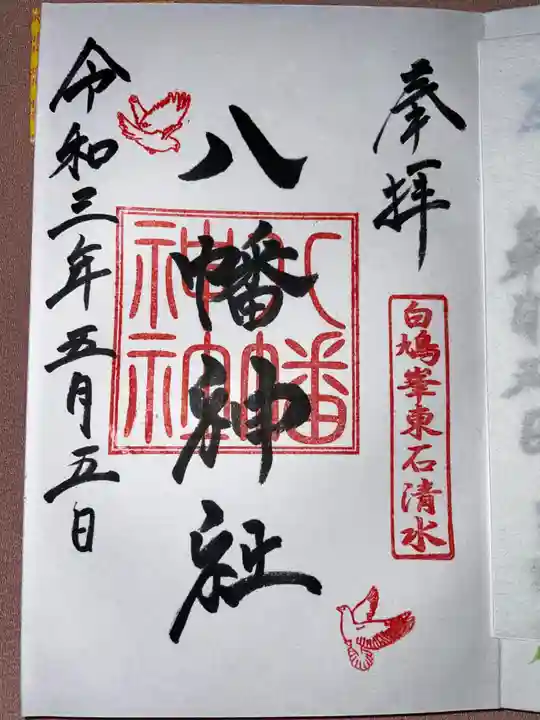 奉拝
白鳩峯東石清水
八幡神社
八幡神社
令和三年五月五日